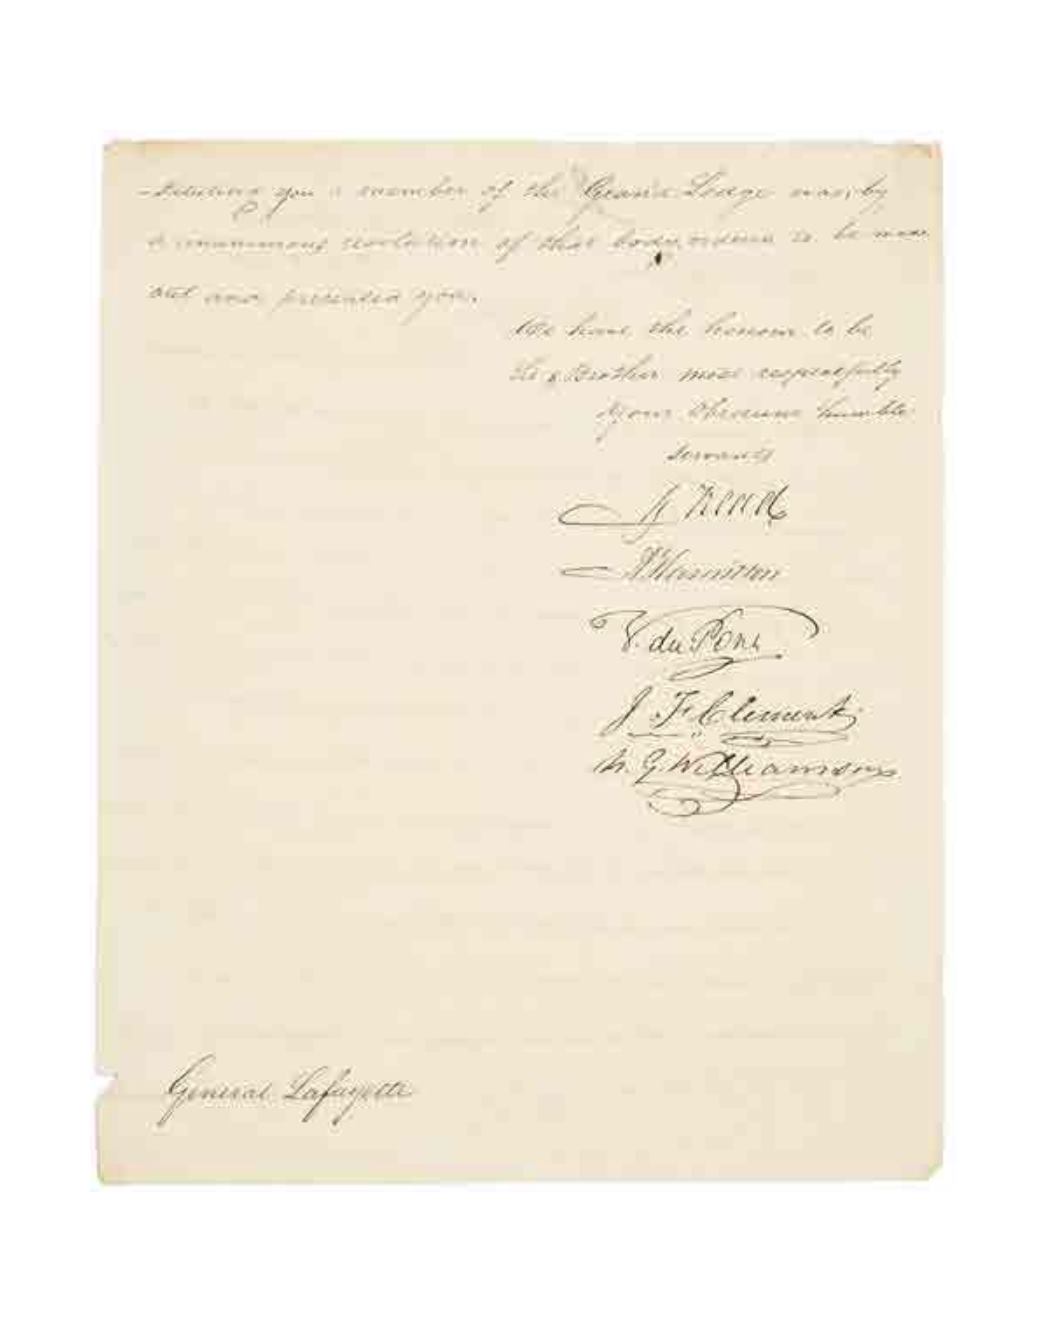 -stituting you a member of the Grand Lodge was, by
a unanimous resolution of that body, ordered to be made
out and presented you.
We have the honour to be
Sir & Brother most respectfully
Your Obedient humble
servants
G Read
V. du Pont
J. F. Clement
N. G. Williamson
General Lafayette